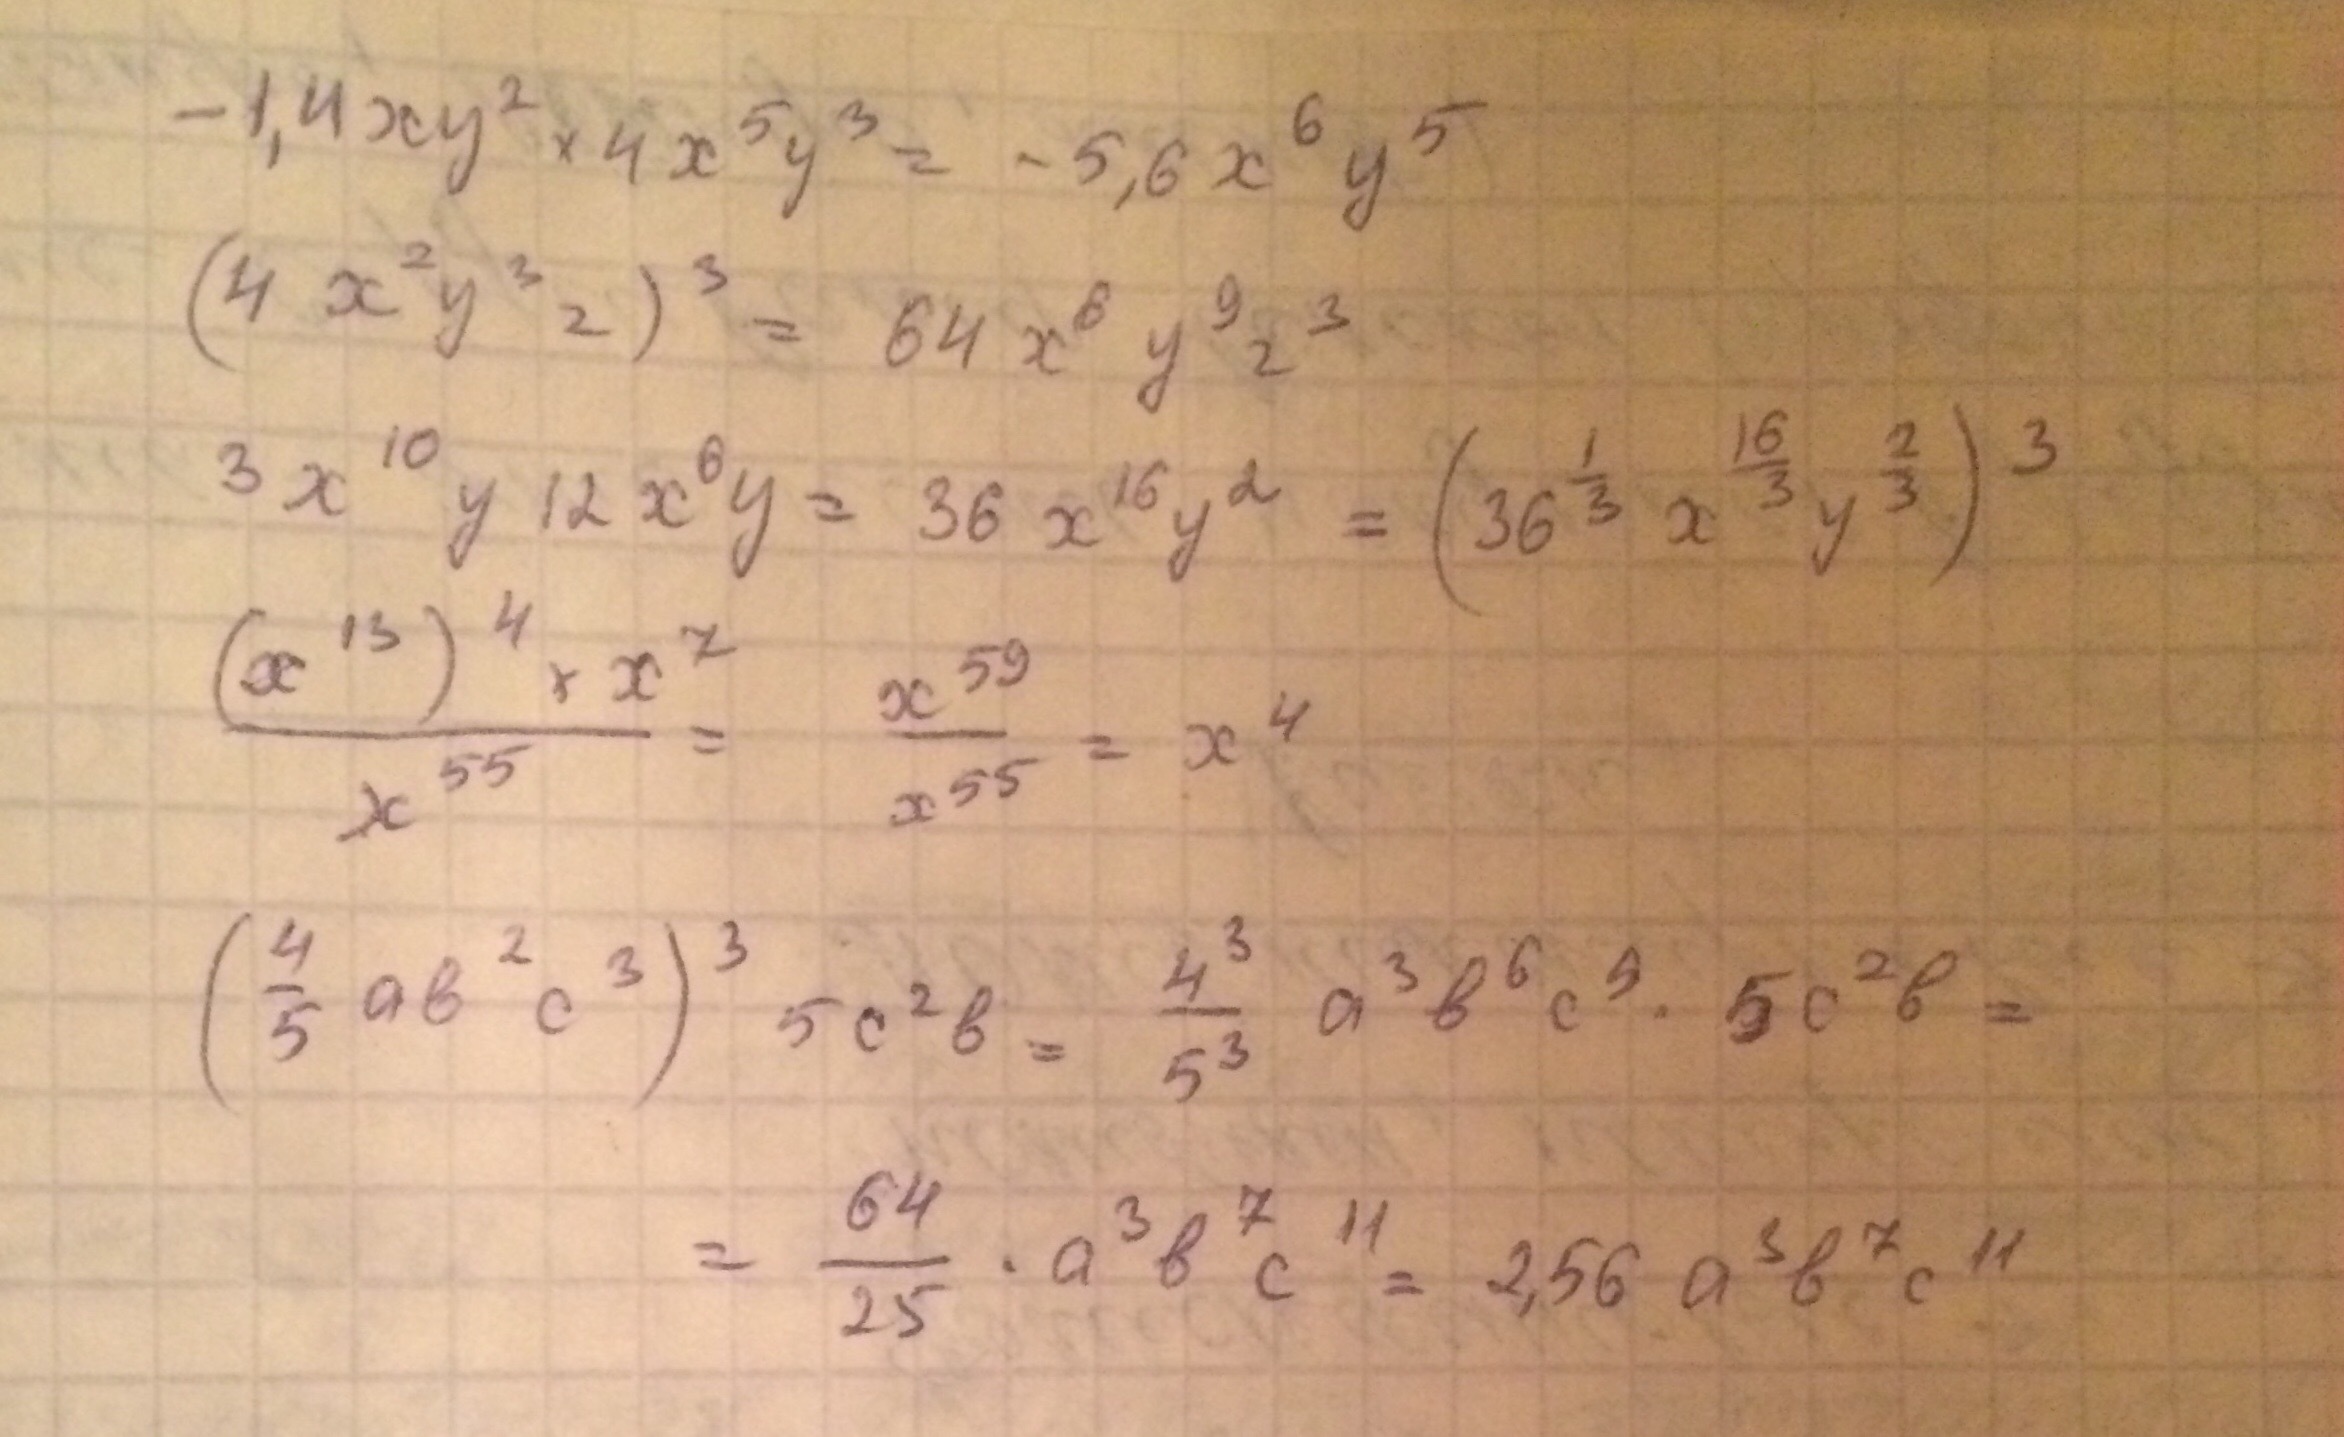 -1,4xy² × 4x⁵y³ = -5,6x⁶y⁵
(4x²y³z)³ = 64x⁶y⁹z³
3x¹⁰y 12x⁶y = 36x¹⁶y² = (36^(1/3) x^(16/3) y^(2/3))³
(x¹³)⁴ × x⁷ / x⁵⁵ = x⁵⁹ / x⁵⁵ = x⁴
(4/5 aв²c³)³ 5c²в = 4³/5³ a³в⁶c⁹ · 5c²в =
= 64/25 · a³в⁷c¹¹ = 2,56 a³в⁷c¹¹